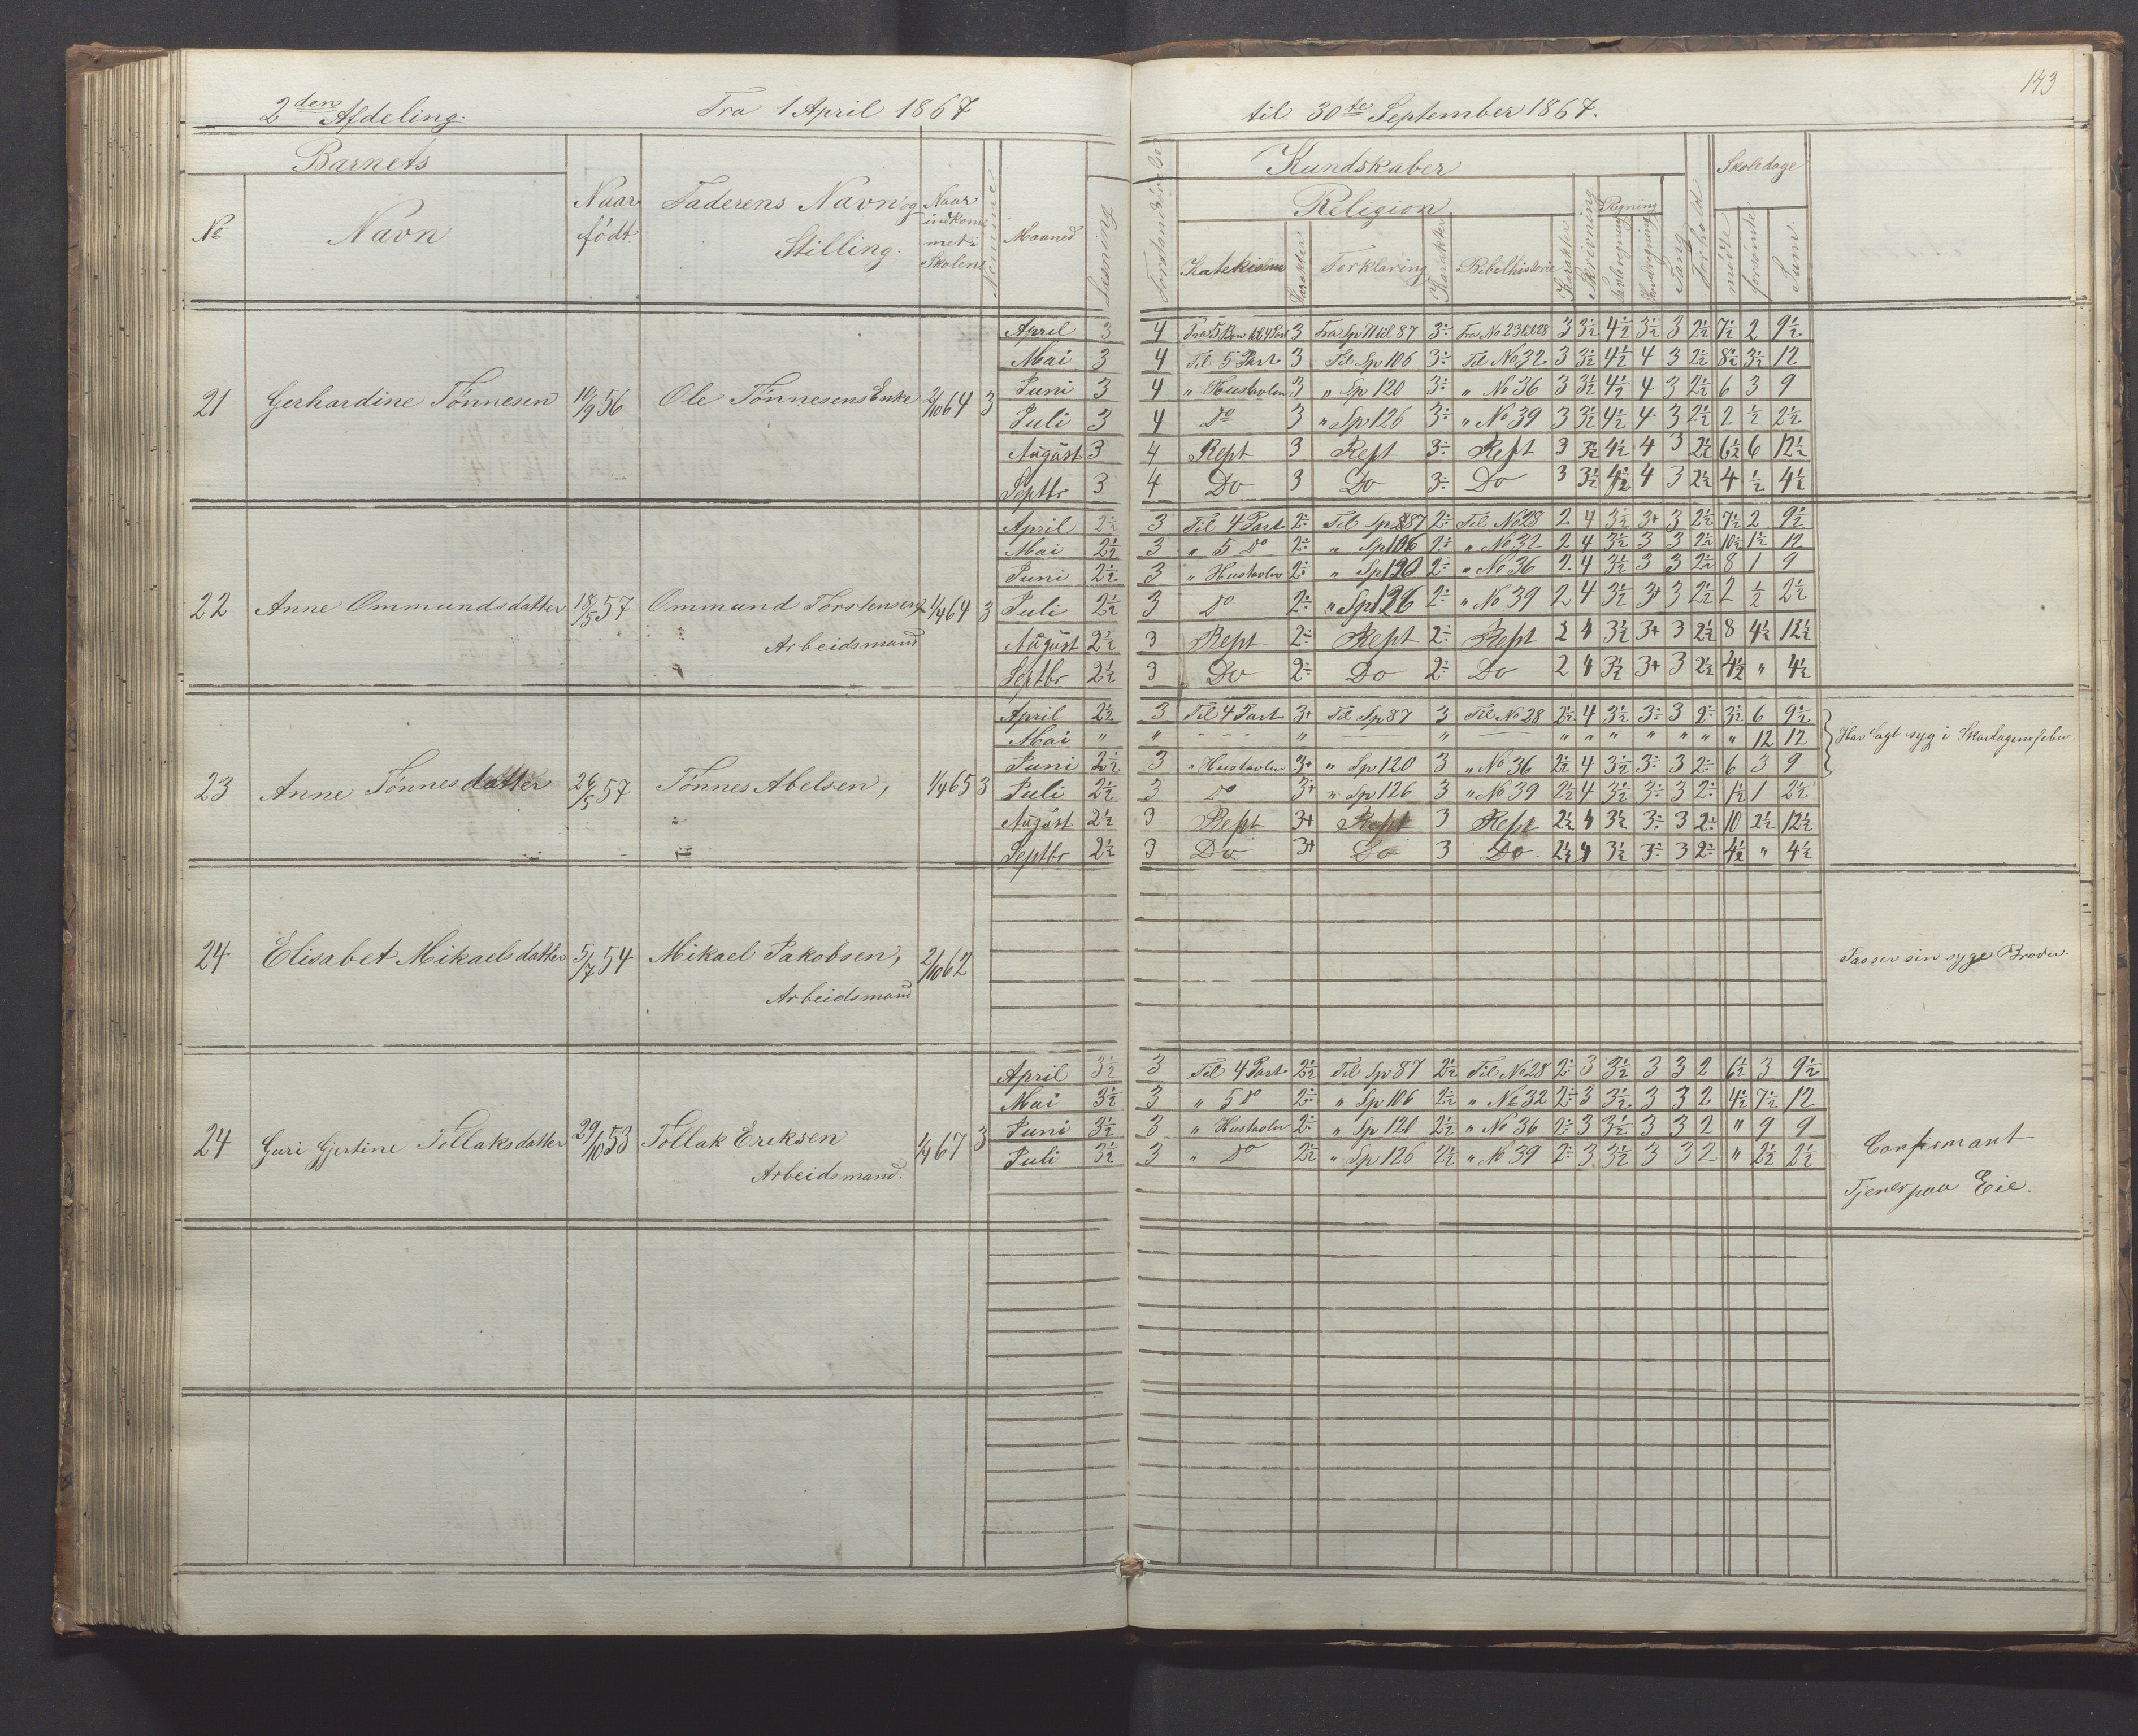 143
2den Afdeling. Fra 1 April 1867 til 30te September 1867.
Barnets Kundskaber Skoledage
No Navn Naar født Faderens Navn og Stilling. Naar indkommet i Skolen Maaned Læsning
Religion Regning
Katekism Karakter Forklaring Karakter Bibelhistorie Karakter Skrivning Sang Forhold mødte forsømte Sum.
21 Gerhardine Tønnesen 10/9 56 Ole Tønnesens Enke 2/10 64 3
April 3 4 3 Fra Sp 71 til 87 3÷ Fra No 23 til 28 3 3½ 4½ 3½ 3 2½ 7½ 2 9½
Mai 3 4 Til 5 Part 3 Til Sp 106 3÷ Til No 32 3 3½ 4½ 4 3 2½ 8½ 3½ 12
Juni 3 4 " Hustavlen 3 " Sp 120 3÷ " No 36 3 3½ 4½ 4 3 2½ 6 3 9
Juli 3 4 Do 3 " Sp 126 3÷ " No 39 3 3½ 4½ 4 3 2½ 2 ½ 2½
August 3 4 Rept 3 Rept 3÷ Rept 3 3½ 4½ 4 3 2½ 6½ 6 12½
Septbr 3 4 Do 3 Do 3÷ Do 3 3½ 4½ 4 3 2½ 4 ½ 4½
22 Anne Ommundsdatter 18/5 57 Ommund Torstensen 1/4 64 3
Arbeidsmand
April 2½ 3 Til 4 Part 2÷ Til Sp 87 2÷ Til No 28 2 4 3½ 3+ 3 2½ 7½ 2 9½
Mai 2½ 3 " 5 Do 2÷ " Sp 106 2÷ " No 32 2 4 3½ 3 3 2½ 10½ 1½ 12
Juni 2½ 3 " Hustavlen 2÷ " Sp 120 2÷ " No 36 2 4 3½ 3 3 2½ 8 1 9
Juli 2½ 3 Do 2÷ " Sp 126 2÷ " No 39 2 4 3½ 3+ 3 2½ 2 ½ 2½
August 2½ 3 Rept 2÷ Rept 2÷ Rept 2 4 3½ 3+ 3 2½ 8 4½ 12½
Septbr 2½ 3 Do 2÷ Do 2÷ Do 2 4 3½ 3+ 3 2½ 4½ " 4½
23 Anne Tønnesdatter 26/5 57 Tønnes Abelsen, 1/4 65 3
April 2½ 3 Til 4 Part 3+ Til Sp 87 3 Til No 28 2½ 4 3½ 3÷ 3 2÷ 3½ 6 9½
Mai " " - - - " " " " " " " " " 12 12 Har lagt syg i
Juni 2½ 3 " Hustavlen 3+ " Sp 120 3 " No 36 2½ 4 3½ 3÷ 3 2÷ 6 3 9
Juli 2½ 3 Do 3+ " Sp 126 3 " No 39 2½ 4 3½ 3÷ 3 2÷ 1½ 1 2½
August 2½ 3 Rept 3+ Rept 3 Rept 2½ 4 3½ 3÷ 3 2÷ 10 2½ 12½
Septbr 2½ 3 Do 3+ Do 3 Do 2½ 4 3½ 3÷ 3 2÷ 4½ " 4½
24 Elisabet Mikaelsdatter 5/7 54 Mikael Jakobsen, 2/10 62 Passer sin syge Broder.
Arbeidsmand
24 Guri Gjertine Tollaksdatter 29/10 53 Tollak Eriksen 1/4 67 3
Arbeidsmand.
April 3½ 3 Til 4 Part 2½ Til Sp 87 2½ Til No 28 2÷ 3 3½ 3 3 2 6½ 3 9½
Mai 3½ 3 " 5 Do 2½ " Sp 106 2½ " No 32 2÷ 3 3½ 3 3 2 4½ 7½ 12
Juni 3½ 3 " Hustavlen 2½ " Sp 120 2½ " No 36 2÷ 3 3½ 3 3 2 " 9 9
Juli 3½ 3 " Do 2½ " Sp 126 2½ " No 39 2÷ 3 3½ 3 3 2 " 2½ 2½
Confirmant
Tjener paa Eie.